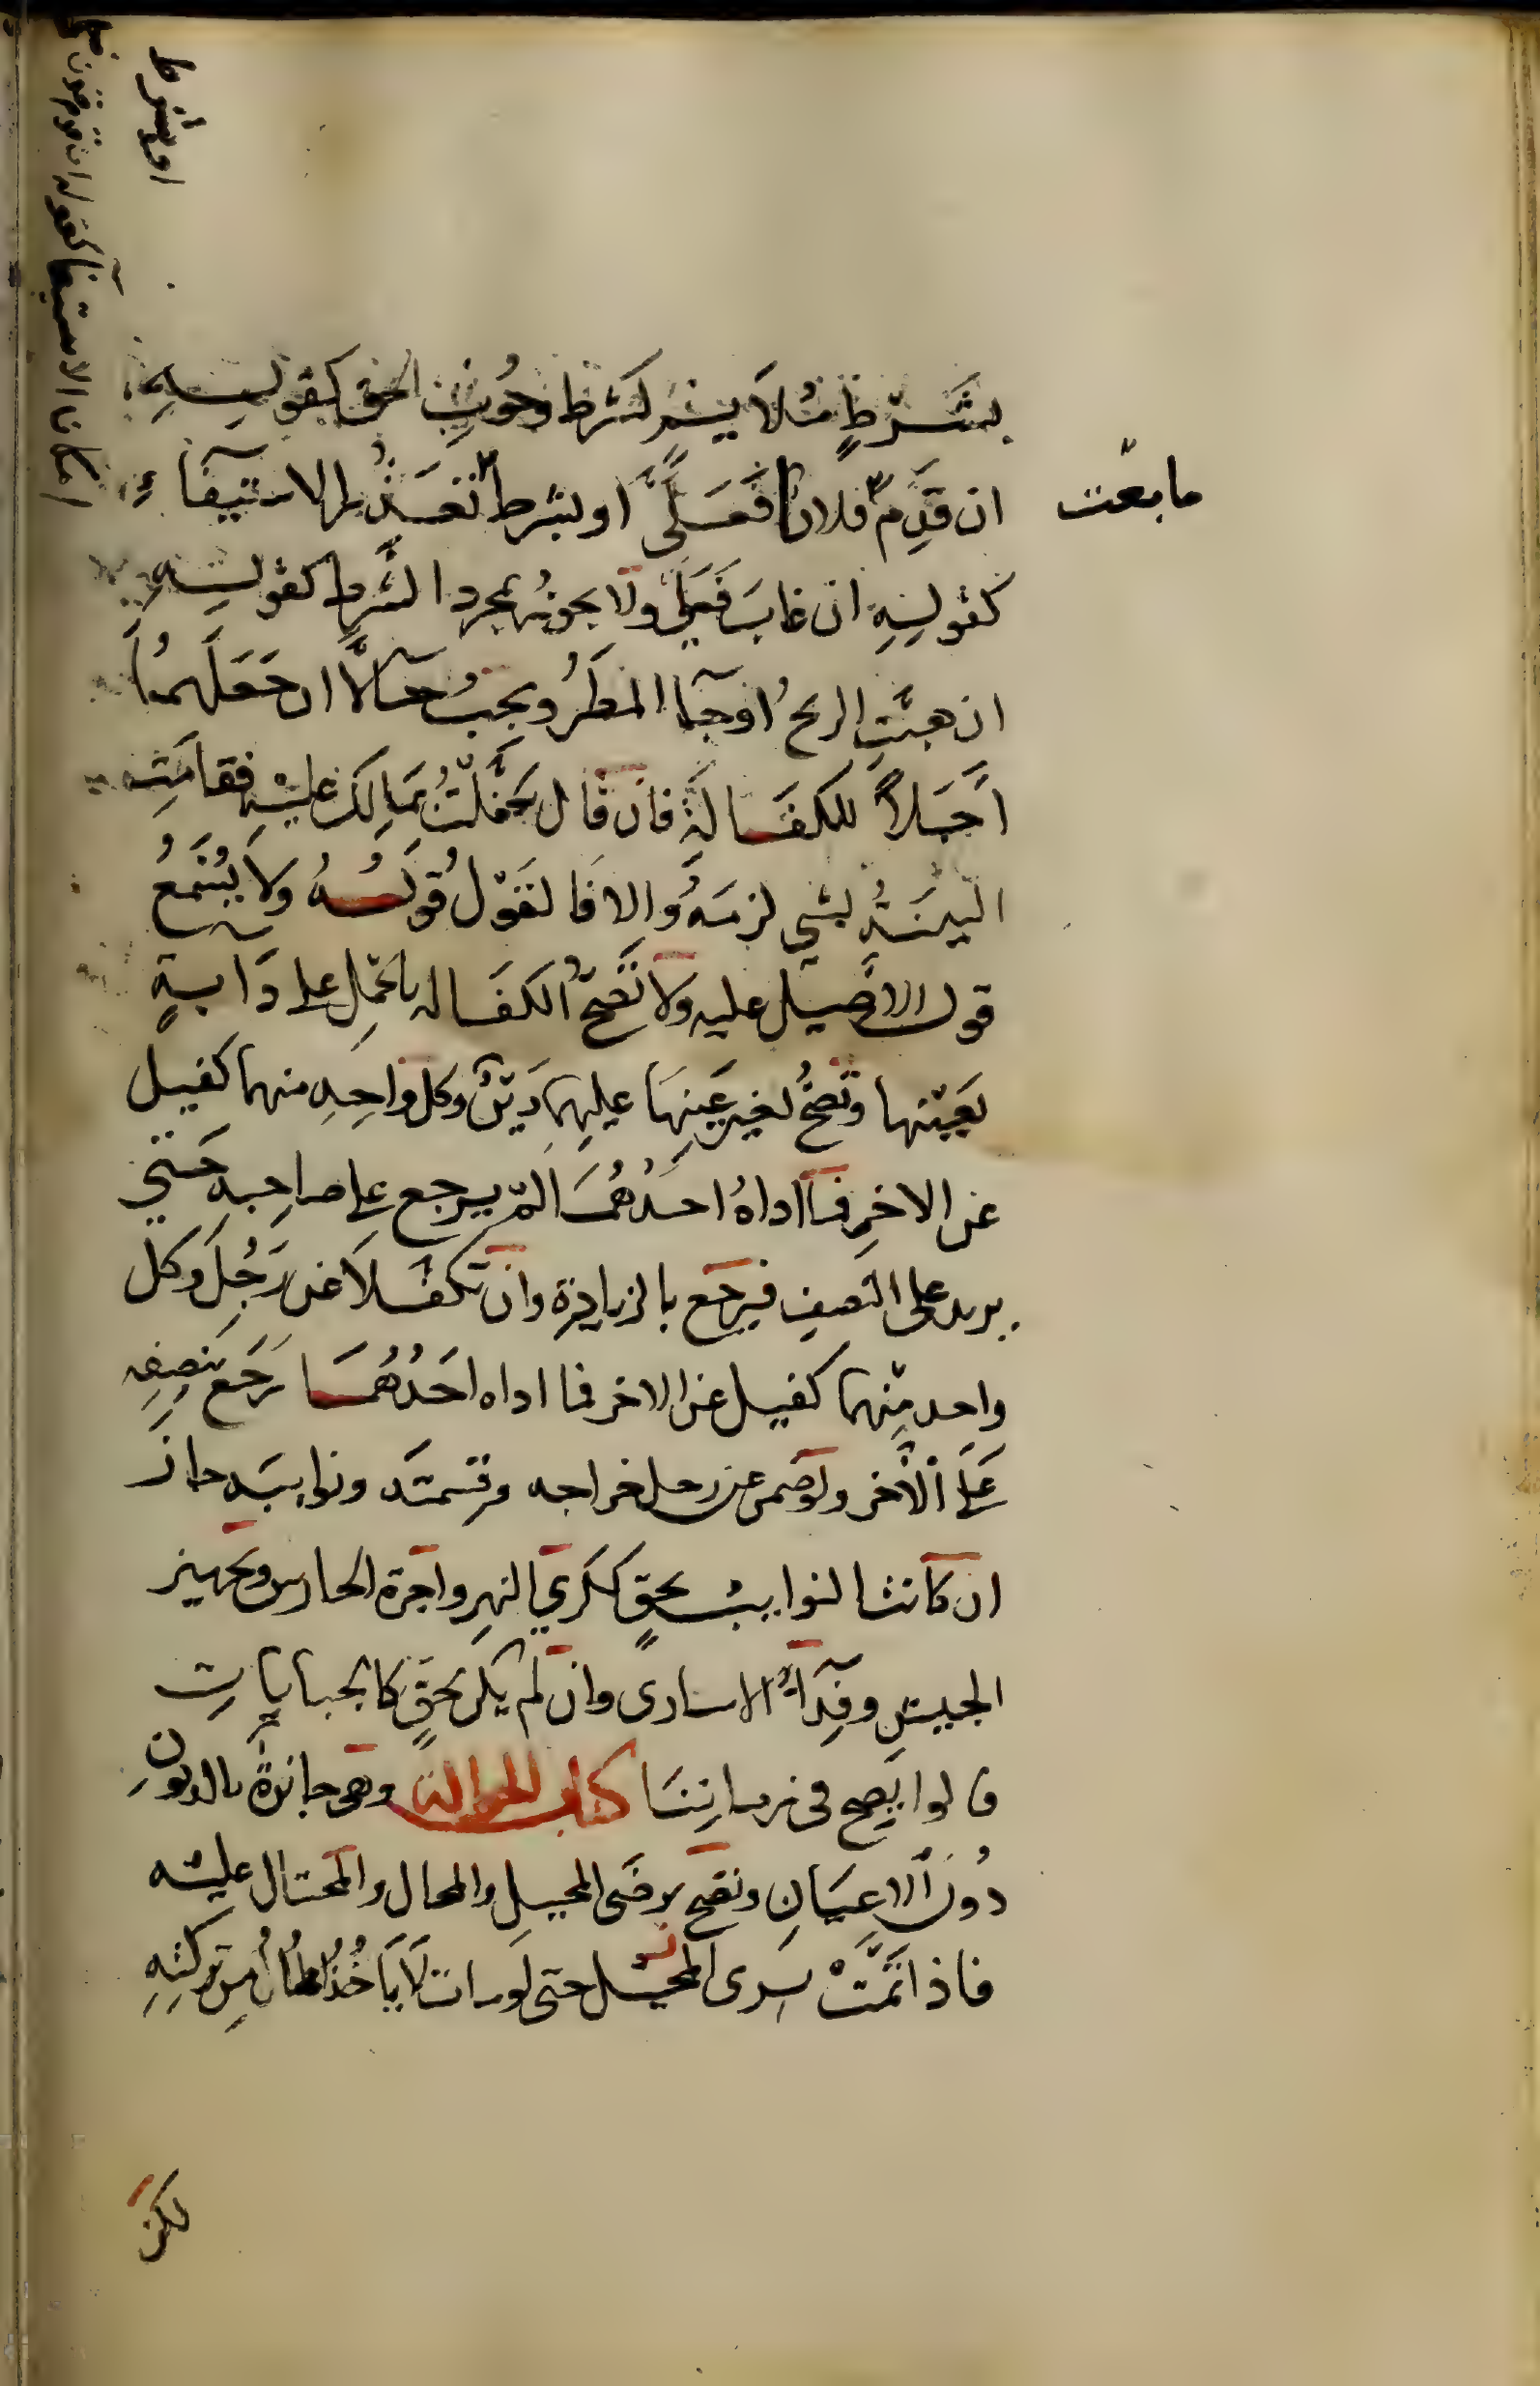 بشرط ملايم كشرط وجوب الحق كقوله
ما بعت
ان قدم فلان فعلي او بشرط تعذر الاستيفاء
كقوله ان غاب فعلي ولا يجوز بمجرد الشرط كقوله
ان هبت الريح او جآ المطر ويجب حالا ان جعلهما
اجلا للكفالة فان قال تكفلت بما لك عليه فقامت
البينة بشي لزمه والا فالقول قوله ولا يسمع
قول الاصيل عليه ولا تصح الكفالة بالحمل على دابة
بعينها وتصح بغير عينها عليهما دين وكل واحد منهما كفيل
عن الاخر فما اداه احدهما لم يرجع على صاحبه حتى
يزيد على النصف فيرجع بالزيادة وان تكفلا عن رجل وكل
واحد منهما كفيل عن الاخر فما اداه احدهما رجع بنصفه
على الاخر ولو ضمن عن رجل خراجه وقسمته ونوايبه جاز
ان كانت النوايب بحق ككري النهر واجرة الحارس وتجهيز
الجيش وفدآء الاسارى وان لم يكن بحق كالجبايات
قالوا يصح في زماننا كتاب الحوالة وهي جائزة بالديون
دون الاعيان وتصح برضى المحيل والمحال والمحتال عليه
فاذا تمت برى المحيل حتى لو مات لا ياخذ المحتال من تركته
لكن
او بشرط
امكان الاستيفآ كقوله ان قدم فلان